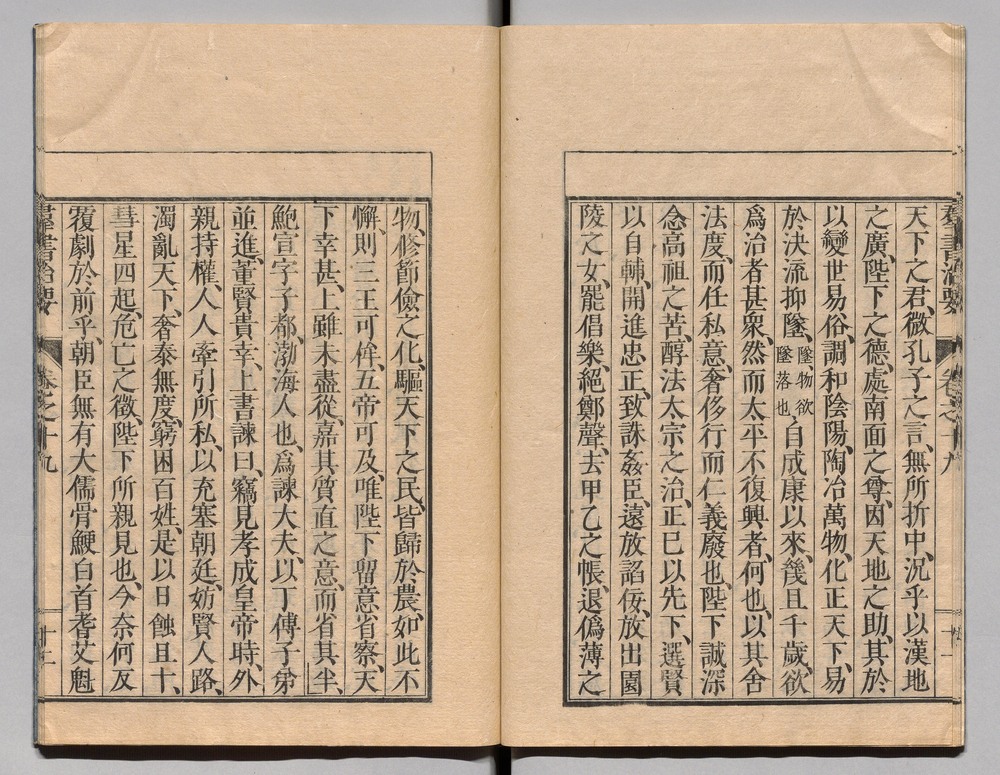 天下之君、微孔子之言、無所折中、況乎以漢地
之廣、陛下之德、處南面之尊、因天地之助、其於
以變世易俗、調和陰陽、陶冶萬物、化正天下、易
於決流抑墜、墜、物欲墜落也、自成康以來、幾且千歲、欲
爲治者甚衆、然而太平不復興者、何也、以其舍
法度、而任私意、奢侈行而仁義廢也、陛下誠深
念高祖之苦、醇法太宗之治、正己以先下、選賢
以自輔、開進忠正、致誅姦臣、遠放諂佞、放出園
陵之女、罷倡樂、絕鄭聲、去甲乙之帳、退僞薄之
物、修節儉之化、驅天下之民、皆歸於農、如此不
懈、則三王可侔、五帝可及、唯陛下留意省察、天
下幸甚、上雖未盡從、嘉其質直之意、而省其半、
鮑宣字子都、渤海人也、爲諫大夫、以丁傅子弟
並進、董賢貴幸、上書諫曰、竊見孝成皇帝時、外
親持權、人人牽引所私、以充塞朝廷、妨賢人路、
濁亂天下、奢泰無度、窮困百姓、是以日蝕且十、
彗星四起、危亡之徵、陛下所親見也、今奈何反
覆劇於前乎、朝臣無有大儒骨鯁白首耆艾魁
羣書治要 卷之十九